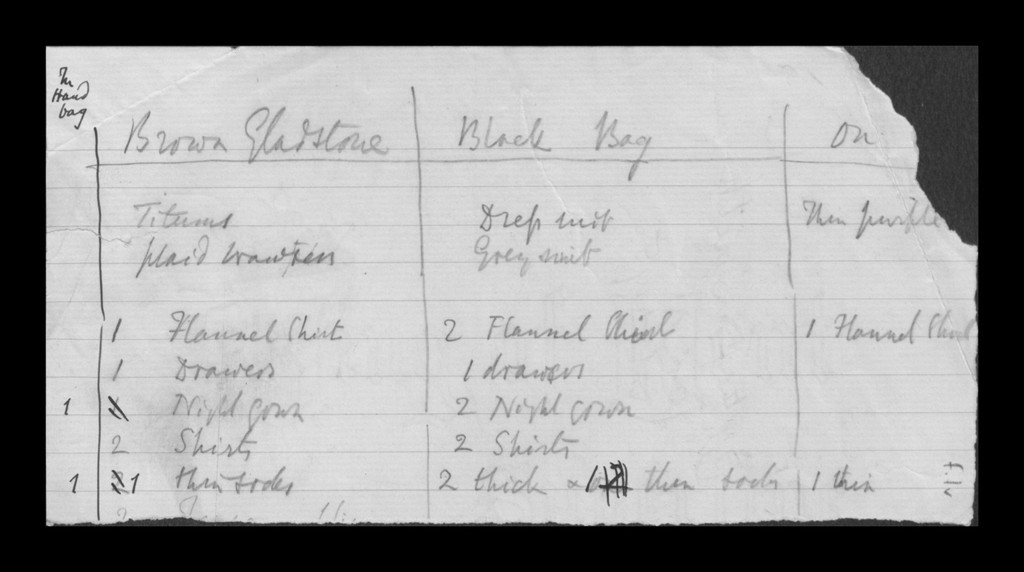 In
Hand
bag
Brown Gladstone | Black Bag | On
Dress suit | Thin purple
plaid trousers | Grey suit
1 Flannel Shirt | 2 Flannel Shirt | 1 Flannel Shirt
1 Drawers | 1 drawers
1 | 1 Night gown | 2 Night gown
2 Shirts | 2 Shirts
1 | 2 1 thin socks | 2 thick & 1 thin socks | 1 thin
2